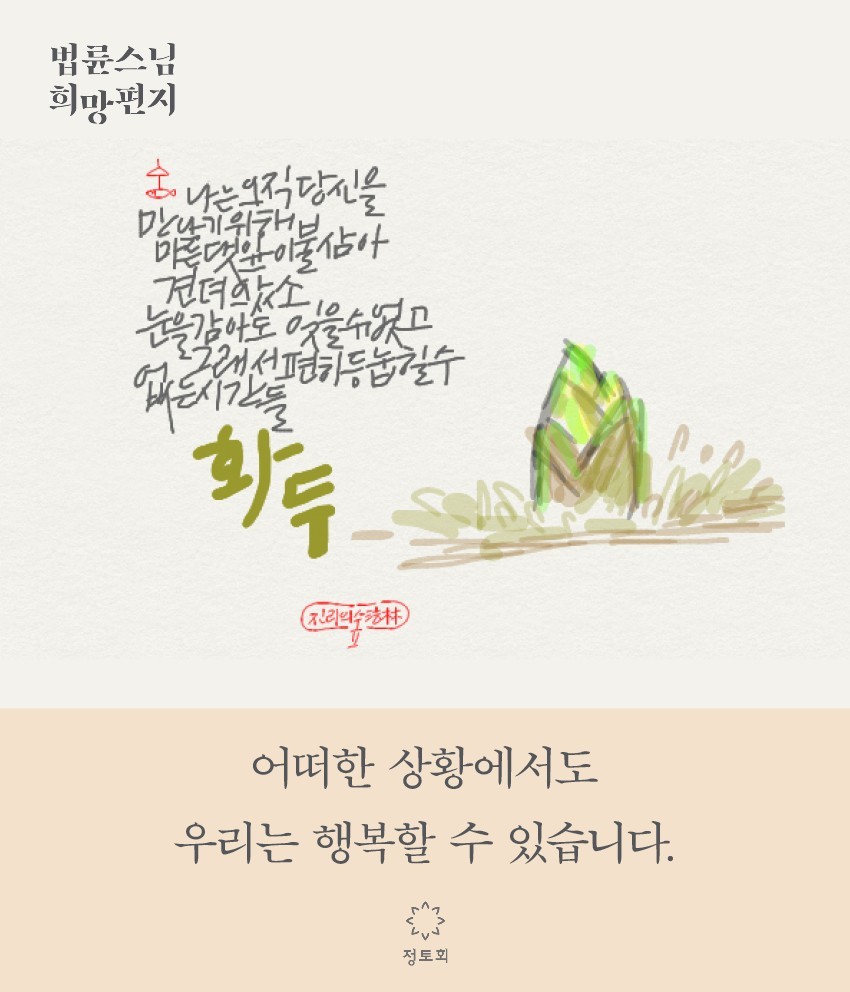 법륜스님
희망편지
나는 오직 당신을
만나기 위해 부
마른 댓잎 이불 삼아
견뎌 왔소
눈을 감아도 잊을 수 없고
그래서 편히 등 눕힐 수
없는 시간들
화두
진리의 숲
어떠한 상황에서도
우리는 행복할 수 있습니다.
정토회